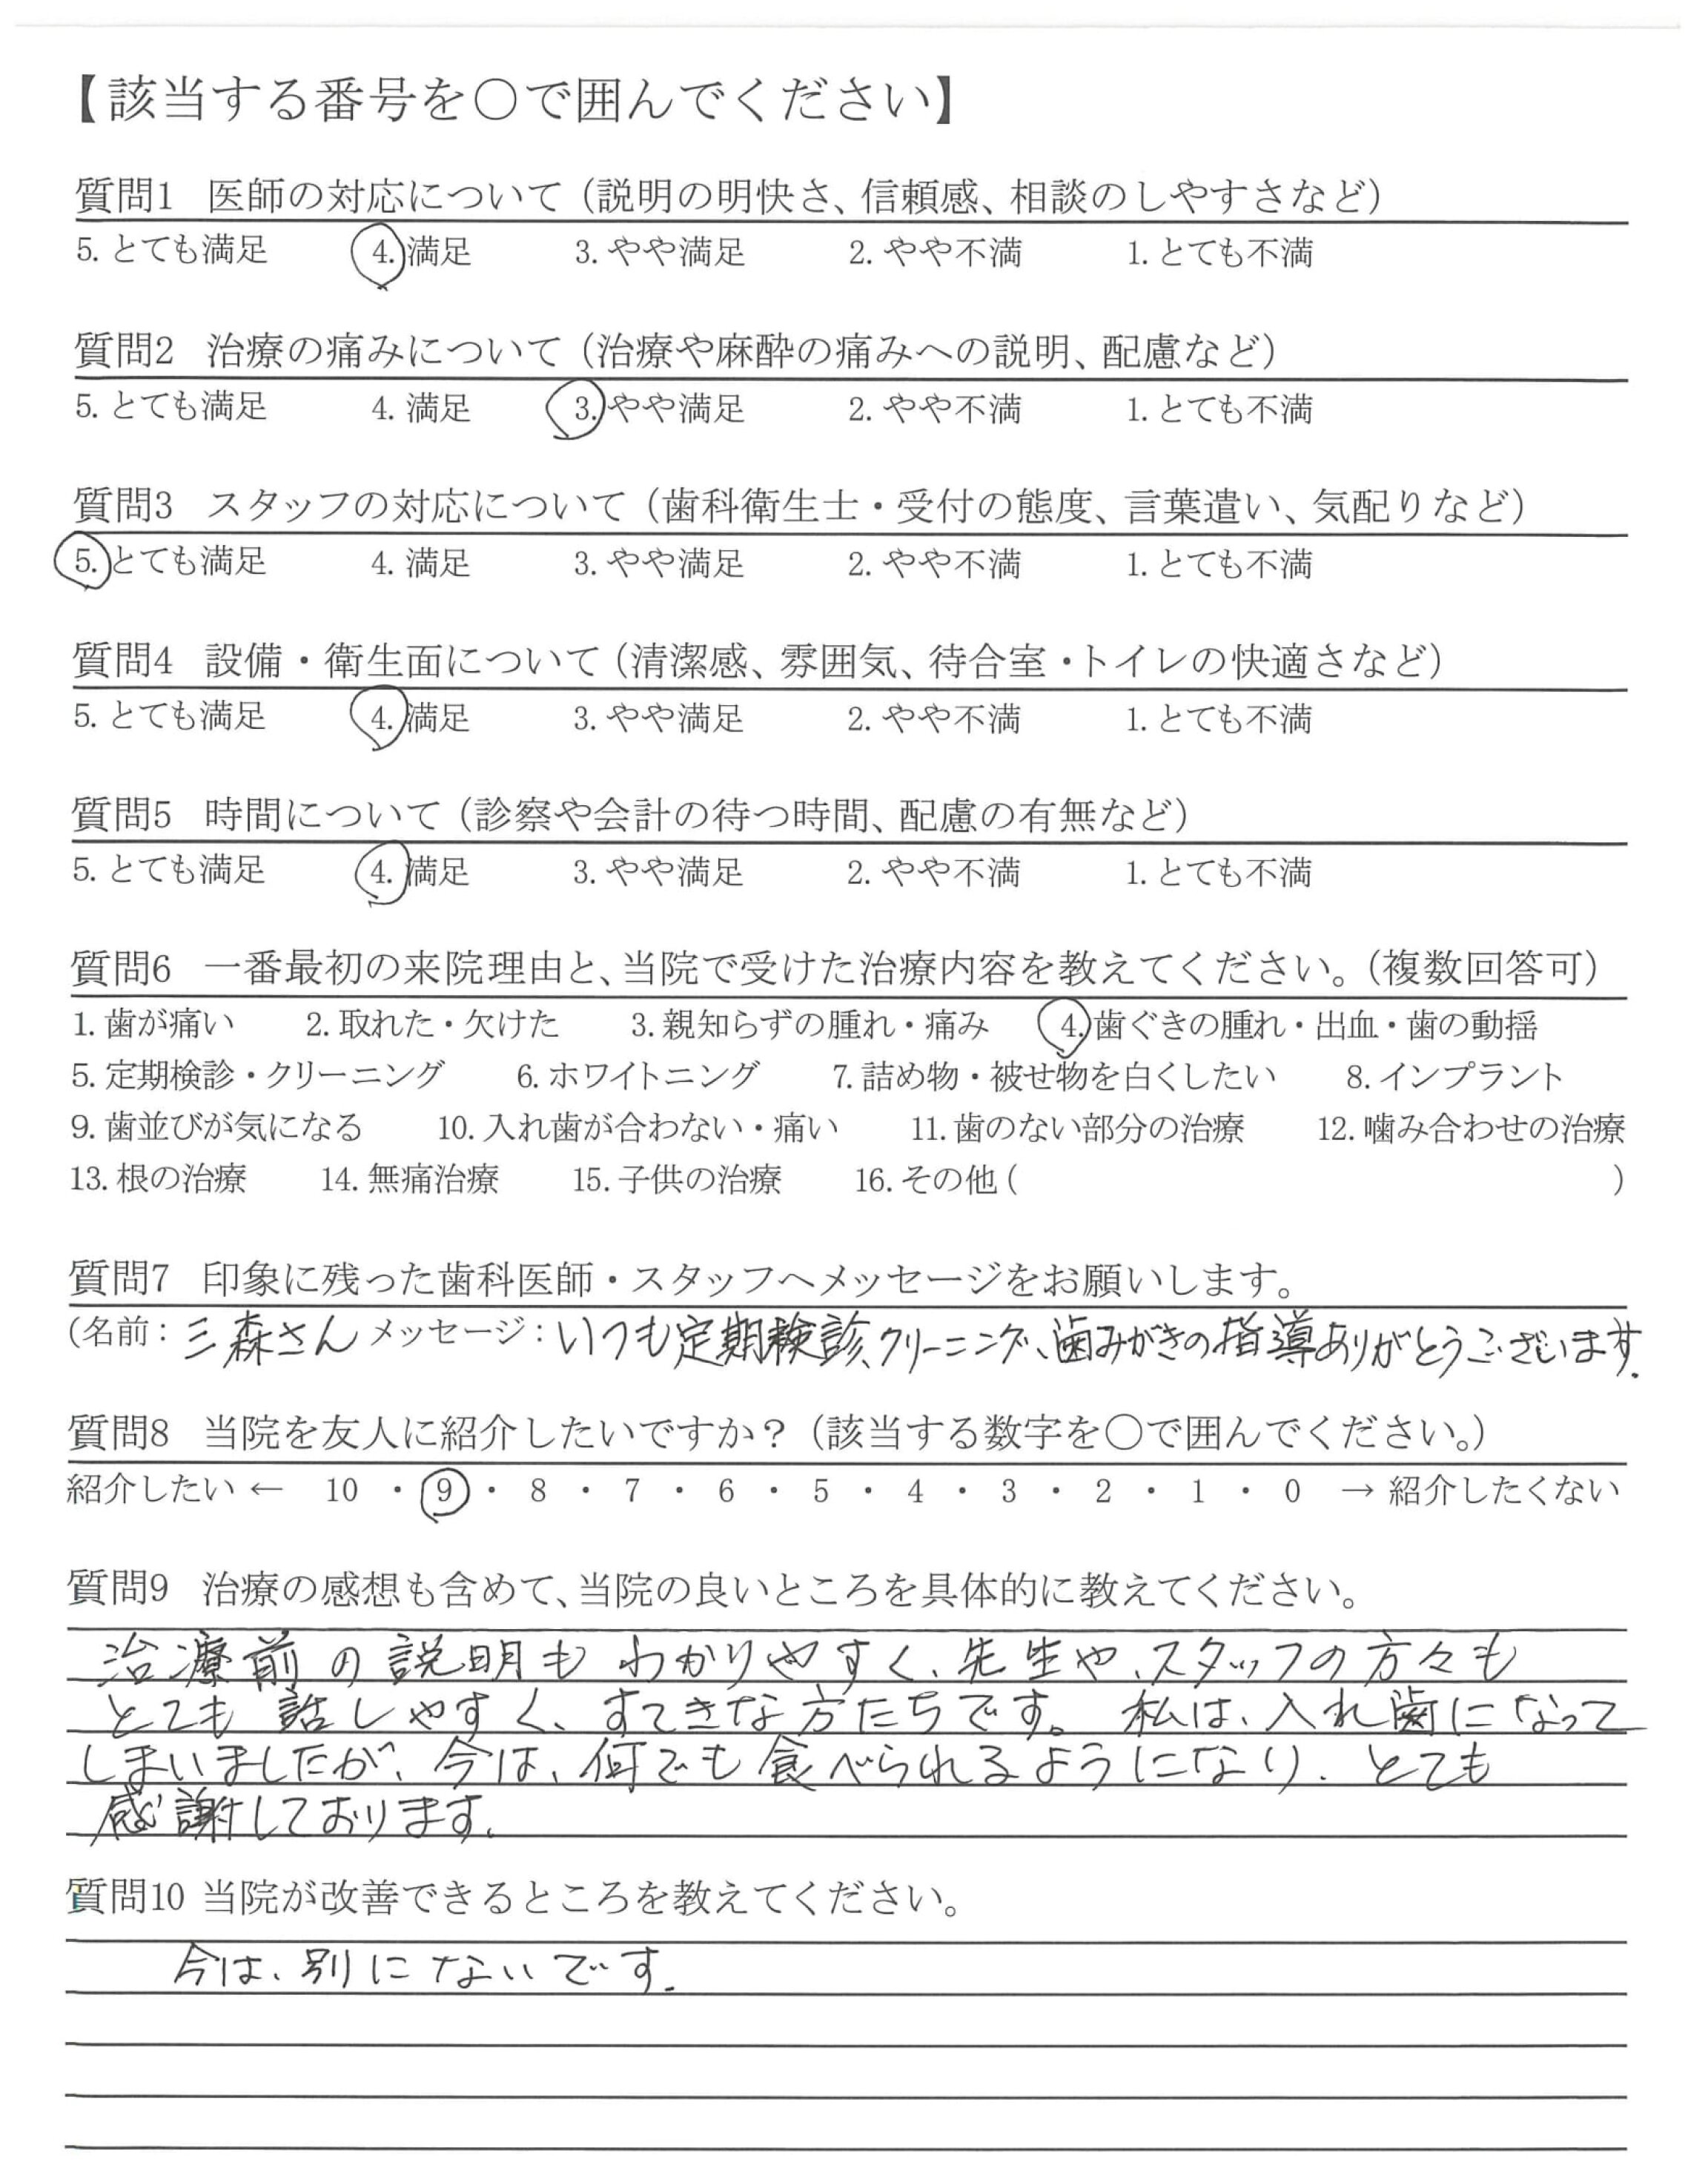 【該当する番号を〇で囲んでください】
質問1 医師の対応について（説明の明快さ、信頼感、相談のしやすさなど）
5. とても満足 4. 満足 3. やや満足 2. やや不満 1. とても不満
質問2 治療の痛みについて（治療や麻酔の痛みへの説明、配慮など）
5. とても満足 4. 満足 3. やや満足 2. やや不満 1. とても不満
質問3 スタッフの対応について（歯科衛生士・受付の態度、言葉遣い、気配りなど）
5. とても満足 4. 満足 3. やや満足 2. やや不満 1. とても不満
質問4 設備・衛生面について（清潔感、雰囲気、待合室・トイレの快適さなど）
5. とても満足 4. 満足 3. やや満足 2. やや不満 1. とても不満
質問5 時間について（診察や会計の待つ時間、配慮の有無など）
5. とても満足 4. 満足 3. やや満足 2. やや不満 1. とても不満
質問6 一番最初の来院理由と、当院で受けた治療内容を教えてください。（複数回答可）
1. 歯が痛い 2. 取れた・欠けた 3. 親知らずの腫れ・痛み 4. 歯ぐきの腫れ・出血・歯の動揺
5. 定期検診・クリーニング 6. ホワイトニング 7. 詰め物・被せ物を白くしたい 8. インプラント
9. 歯並びが気になる 10. 入れ歯が合わない・痛い 11. 歯のない部分の治療 12. 噛み合わせの治療
13. 根の治療 14. 無痛治療 15. 子供の治療 16. その他 ( )
質問7 印象に残った歯科医師・スタッフへメッセージをお願いします。
（名前：三森さん メッセージ：いつも定期検診、クリーニング、歯みがきの指導ありがとうございます.
質問8 当院を友人に紹介したいですか？（該当する数字を〇で囲んでください。）
紹介したい ← 10 ・ 9 ・ 8 ・ 7 ・ 6 ・ 5 ・ 4 ・ 3 ・ 2 ・ 1 ・ 0 → 紹介したくない
質問9 治療の感想も含めて、当院の良いところを具体的に教えてください。
治療前の説明もわかりやすく、先生や、スタッフの方々も
とても話しやすく、すてきな方たちです。私は、入れ歯になって
しまいましたが、今は、何でも食べられるようになり、とても
感謝しております。
質問10 当院が改善できるところを教えてください。
今は、別にないです.